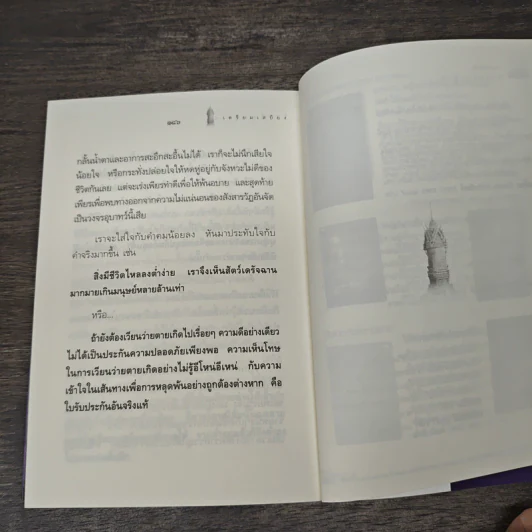 ๑๘๖
เตรียมเสบียง
กลั้นน้ำตาและอาการสะอึกสะอื้นไม่ได้ เราก็จะไม่นึกเสียใจ
น้อยใจ หรือกระทั่งปล่อยใจให้หดหู่อยู่กับจังหวะไม่ดีของ
ชีวิตกันเลย แต่จะเร่งเพียรทำดีเพื่อให้พ้นอบาย และสุดท้าย
เพียรเพื่อพบทางออกจากความไม่แน่นอนของสังสารวัฏอันจัด
เป็นวงจรอุบาทว์นี้เสีย
เราจะใส่ใจกับคำคมน้อยลง หันมาประทับใจกับ
คำจริงมากขึ้น เช่น
สิ่งมีชีวิตไหลลงต่ำง่าย เราจึงเห็นสัตว์เดรัจฉาน
มากมายเกินมนุษย์หลายล้านเท่า
หรือ...
ถ้ายังต้องเวียนว่ายตายเกิดไปเรื่อยๆ ความดีอย่างเดียว
ไม่ได้เป็นประกันความปลอดภัยเพียงพอ ความเห็นโทษ
ในการเวียนว่ายตายเกิดอย่างไม่รู้อีโหน่อีเหน่ กับความ
เข้าใจในเส้นทางเพื่อการหลุดพ้นอย่างถูกต้องต่างหาก คือ
ใบรับประกันอันจริงแท้